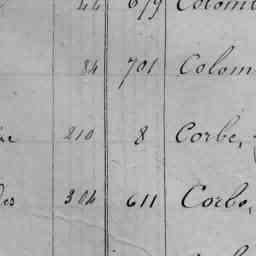 44 679 Colom
84 701 Colom
210 8 Corbe,
des 304 611 Corbe,